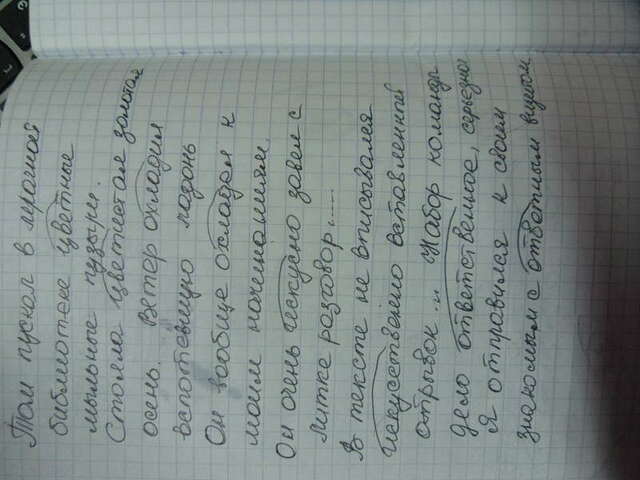 Том пускал в мрачной
библиотеке цветные
мыльные пузыри.
Стояла цветистая золотая
осень. Ветер охладил
вспотевшую ладонь
Он вообще охладел к
моим начинаниям.
Он очень искусно завел с
Литке разговор.....
В тексте не вписывался
искусственно вставленный
отрывок... Набор команды
дело ответственное, серьезное
Я отправился к своим
знакомым с ответным визитом